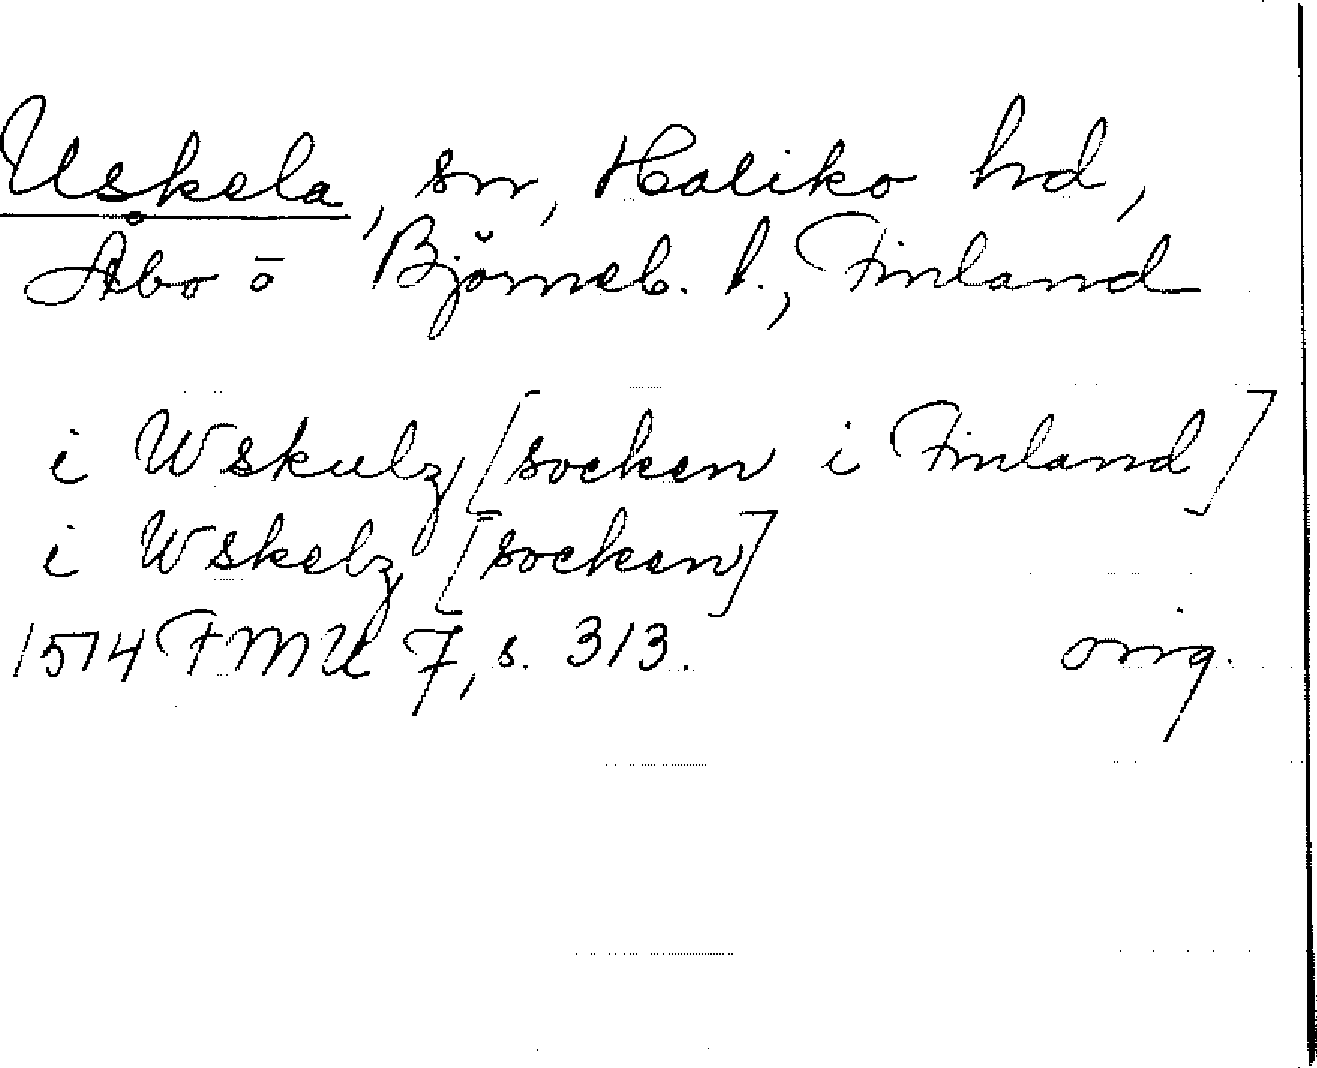 Uskela, sn, Haliko hd,
Åbo o Björneb. l., Finland
i Wskulz [socken i Finland]
i Wskelz [socken]
1514 FMU 7, s. 313. orig.